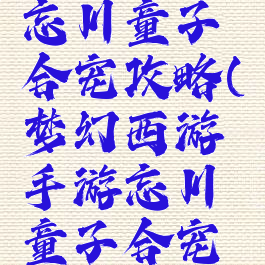 忘川童子
合宠攻略(
梦幻西游
手游忘川
童子合宠